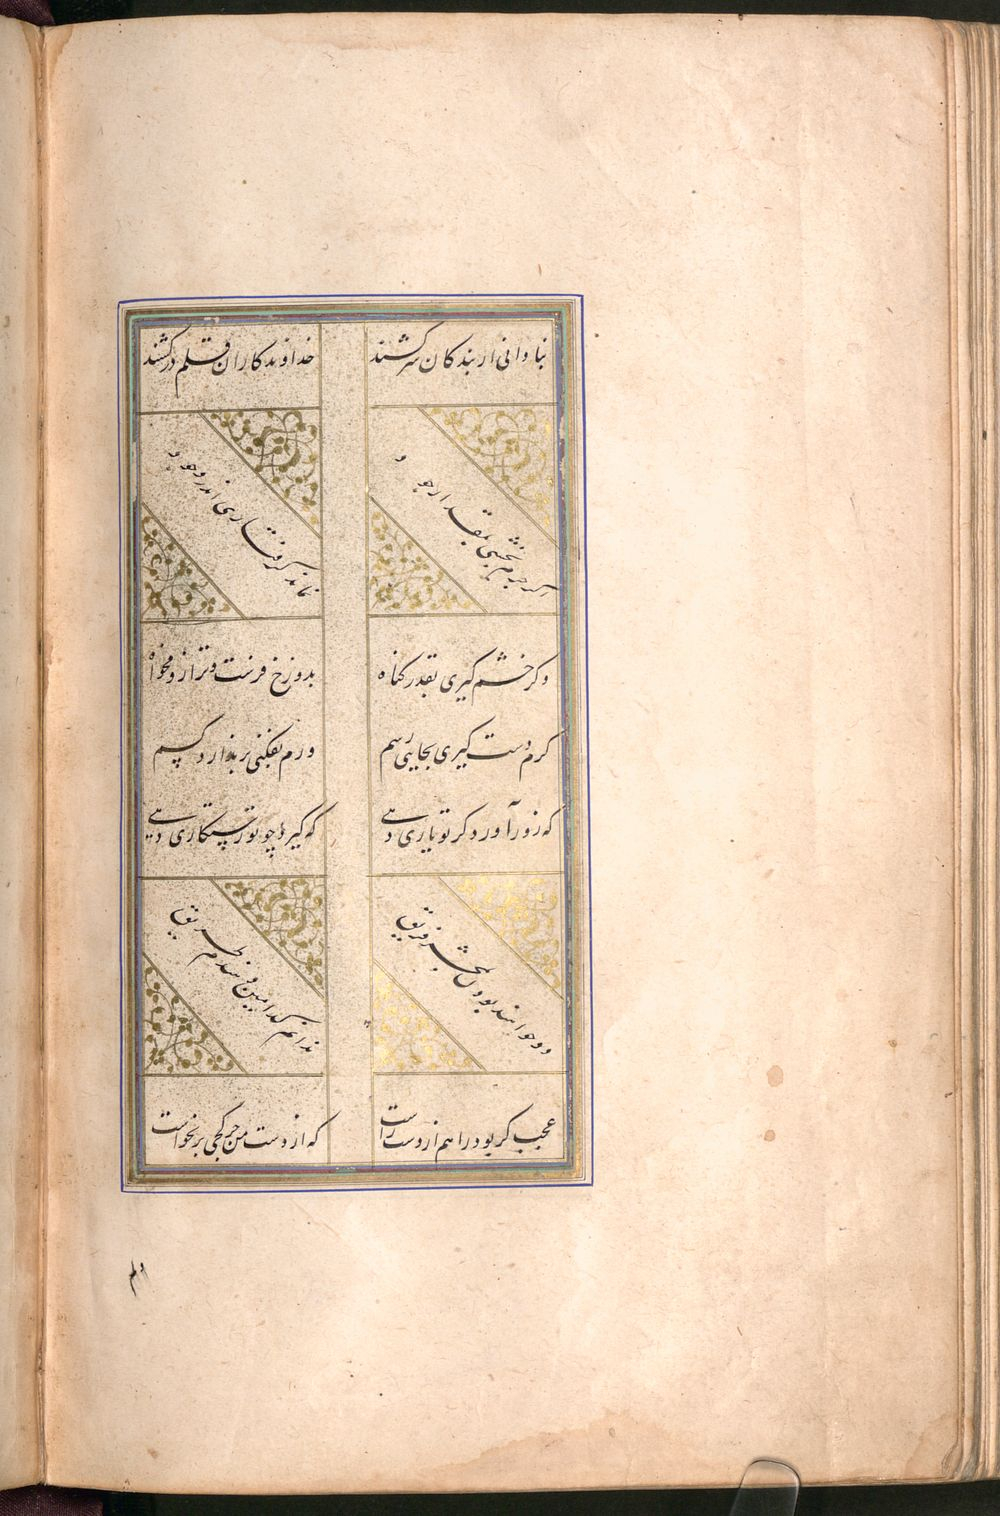 بنادانی ار بندکان سرکشند
خداوندکاران قلم درکشند
اکر جرم بخشی بمقدار جود
نماند کرفتاری اندر وجود
وکر خشم کیری بقدر کناه
بدوزخ فرست و ترازو مخواه
کرم دست کیری بجایی رسم
ورم بفکنی بر نذارد کسم
که زور آورد کر تو یاری دهی
که کیرد چو تو رستکاری دهی
دو خواهند بودن بمحشر فریق
ندانم کدامین دهندم طریق
عجب کر بود راهم از دست راست
که از دست من جز کجی برنخواست
دلم